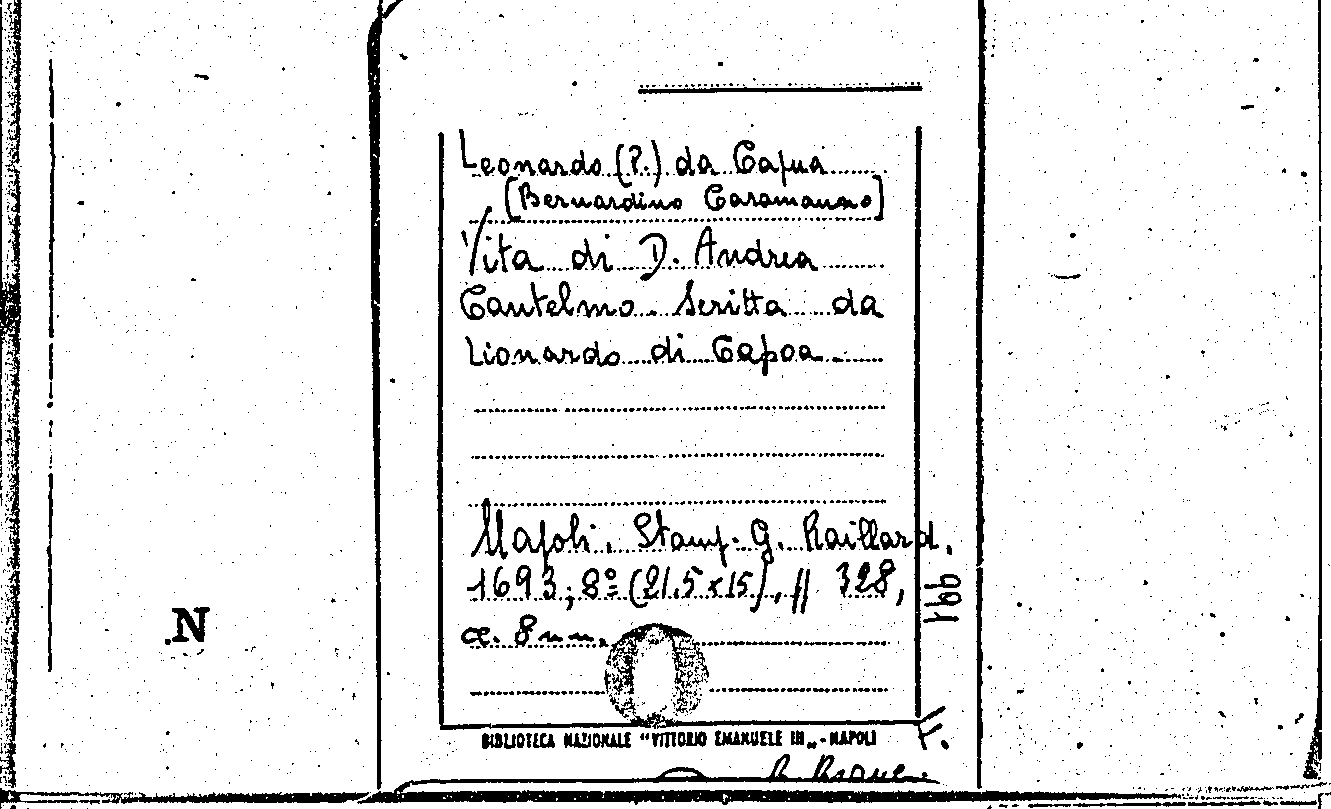 Leonardo (P.) da Capua
[Bernardino Caramanno]
Vita di D. Andrea
Cantelmo. Scritta da
Lionardo di Capoa.
Napoli. Stamp. G. Raillard.
1693; 8º (21.5 x 15), // 328,
cc. 8 nn.
.N
BIBLIOTECA NAZIONALE "VITTORIO EMANUELE III„ - NAPOLI